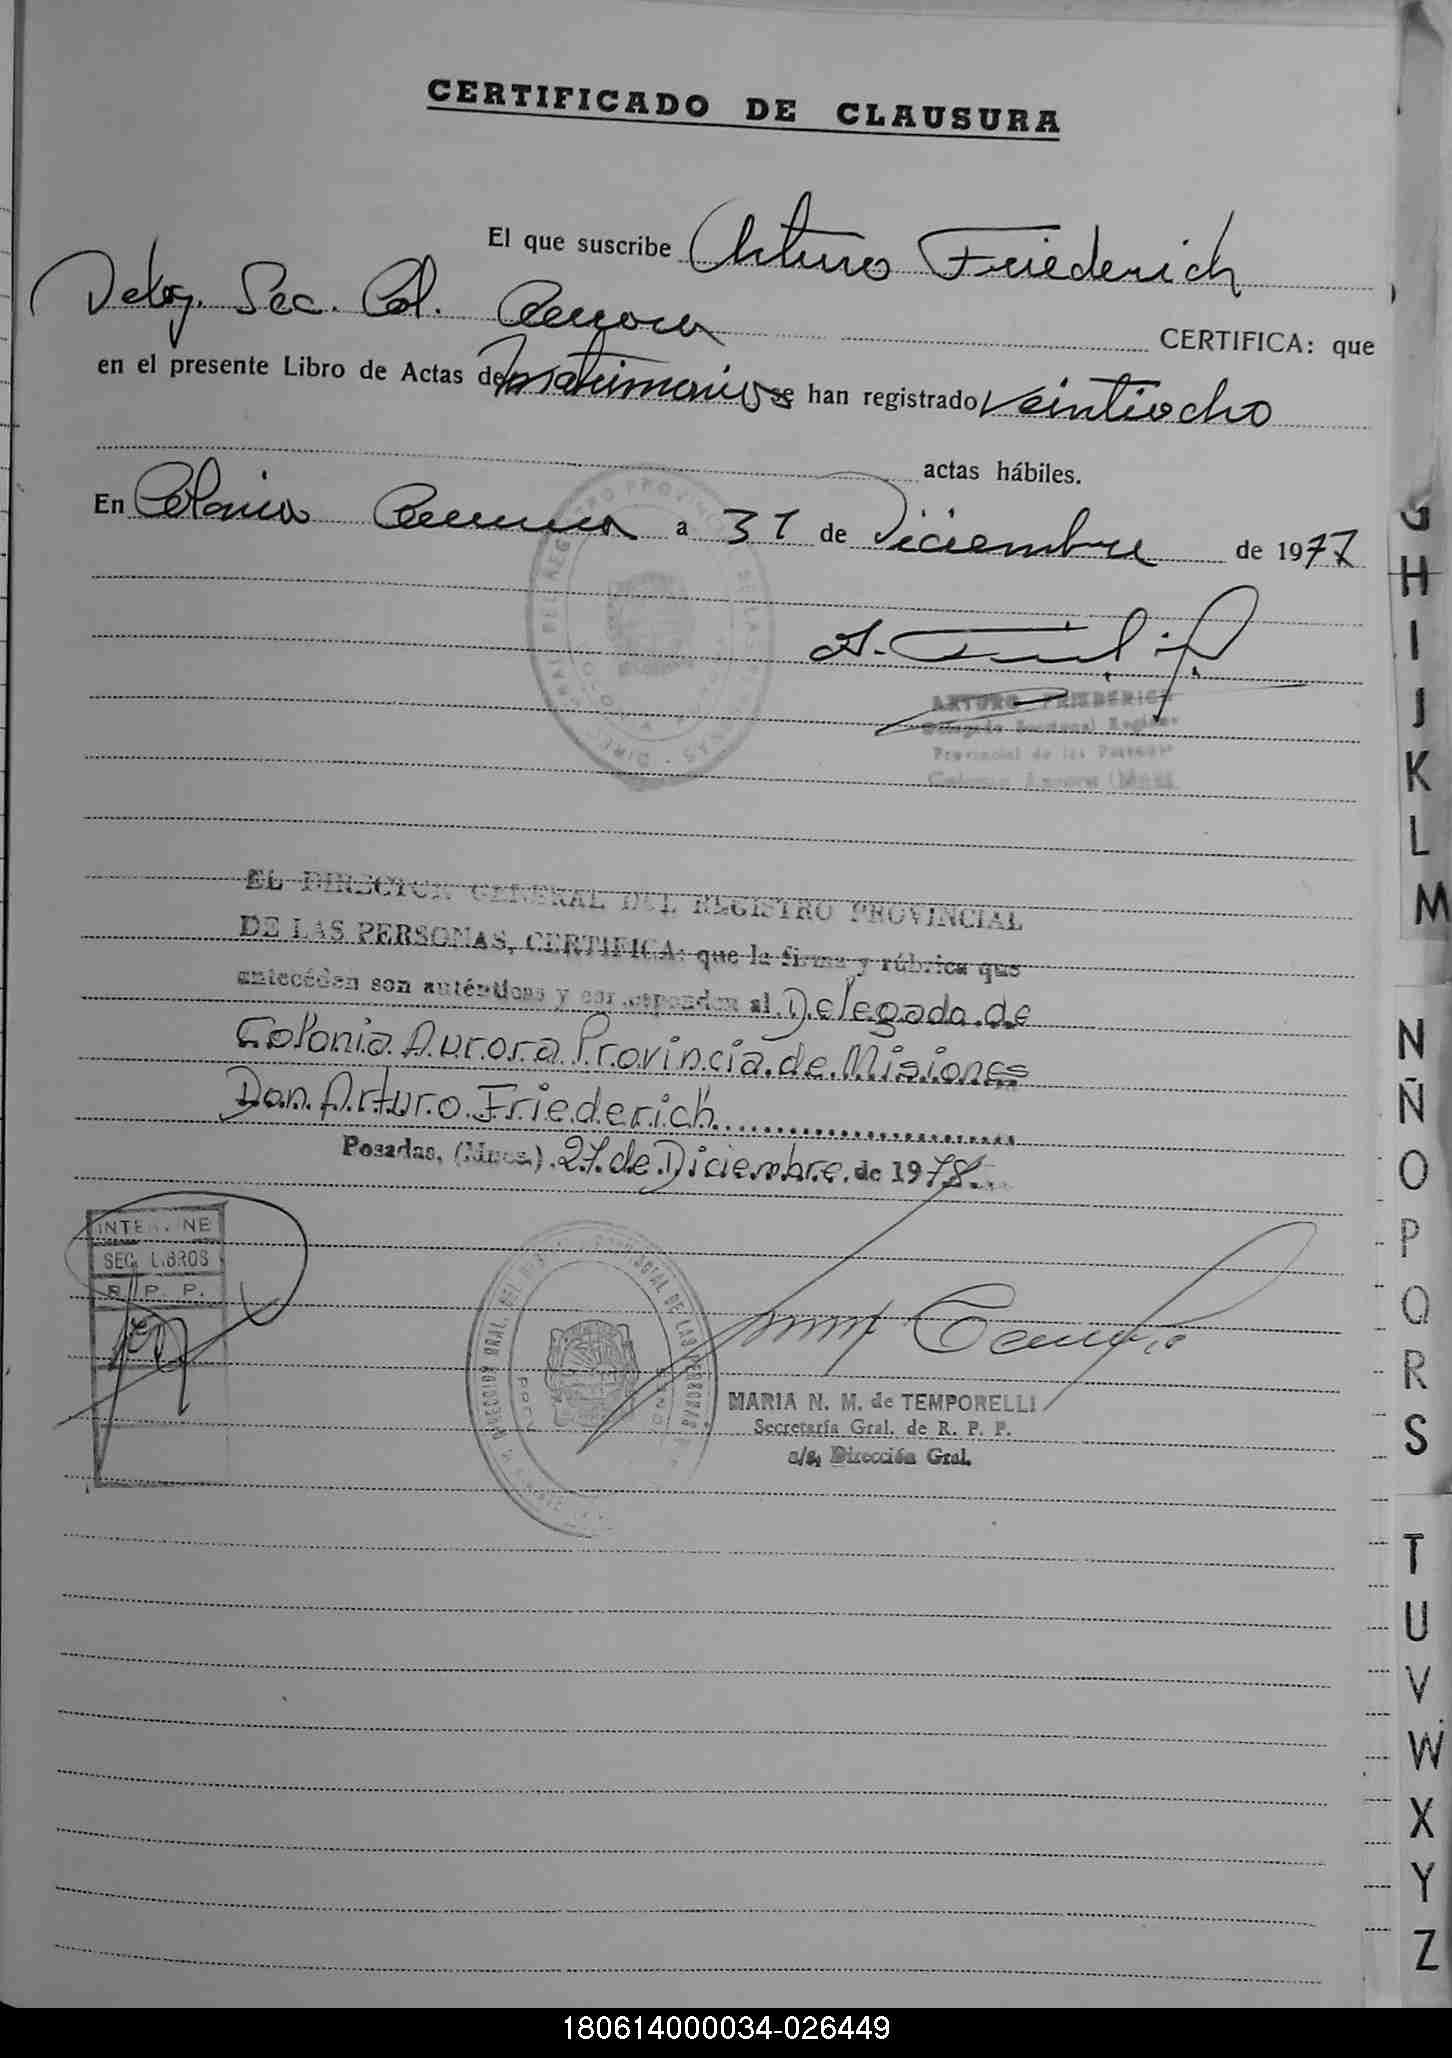 CERTIFICADO DE CLAUSURA
El que suscribe Arturo Friederich
Deleg. Sec. Col. Aurora CERTIFICA: que
en el presente Libro de Actas de Matrimonios se han registrado Veintiocho
actas hábiles.
En Colonia Aurora a 31 de Diciembre de 1977
ARTURO FRIEDERICH
Delegado Seccional Registro
Provincial de las Personas
Colonia Aurora (Mnes.
EL DIRECTOR GENERAL DEL REGISTRO PROVINCIAL
DE LAS PERSONAS, CERTIFICA: que la firma y rúbrica que
anteceden son auténticas y corresponden al Delegado de
Colonia Aurora Provincia de Misiones
Don Arturo Friederich
Posadas, (Mnes.) 27 de Diciembre de 1978
INTERVINE
SEC. LIBROS
R. P. P.
MARIA N. M. de TEMPORELLI
Secretaría Gral. de R. P. P.
a/c. Dirección Gral.
G
H
I
J
K
L
M
N
Ñ
O
P
Q
R
S
T
U
V
W
X
Y
Z
180614000034-026449